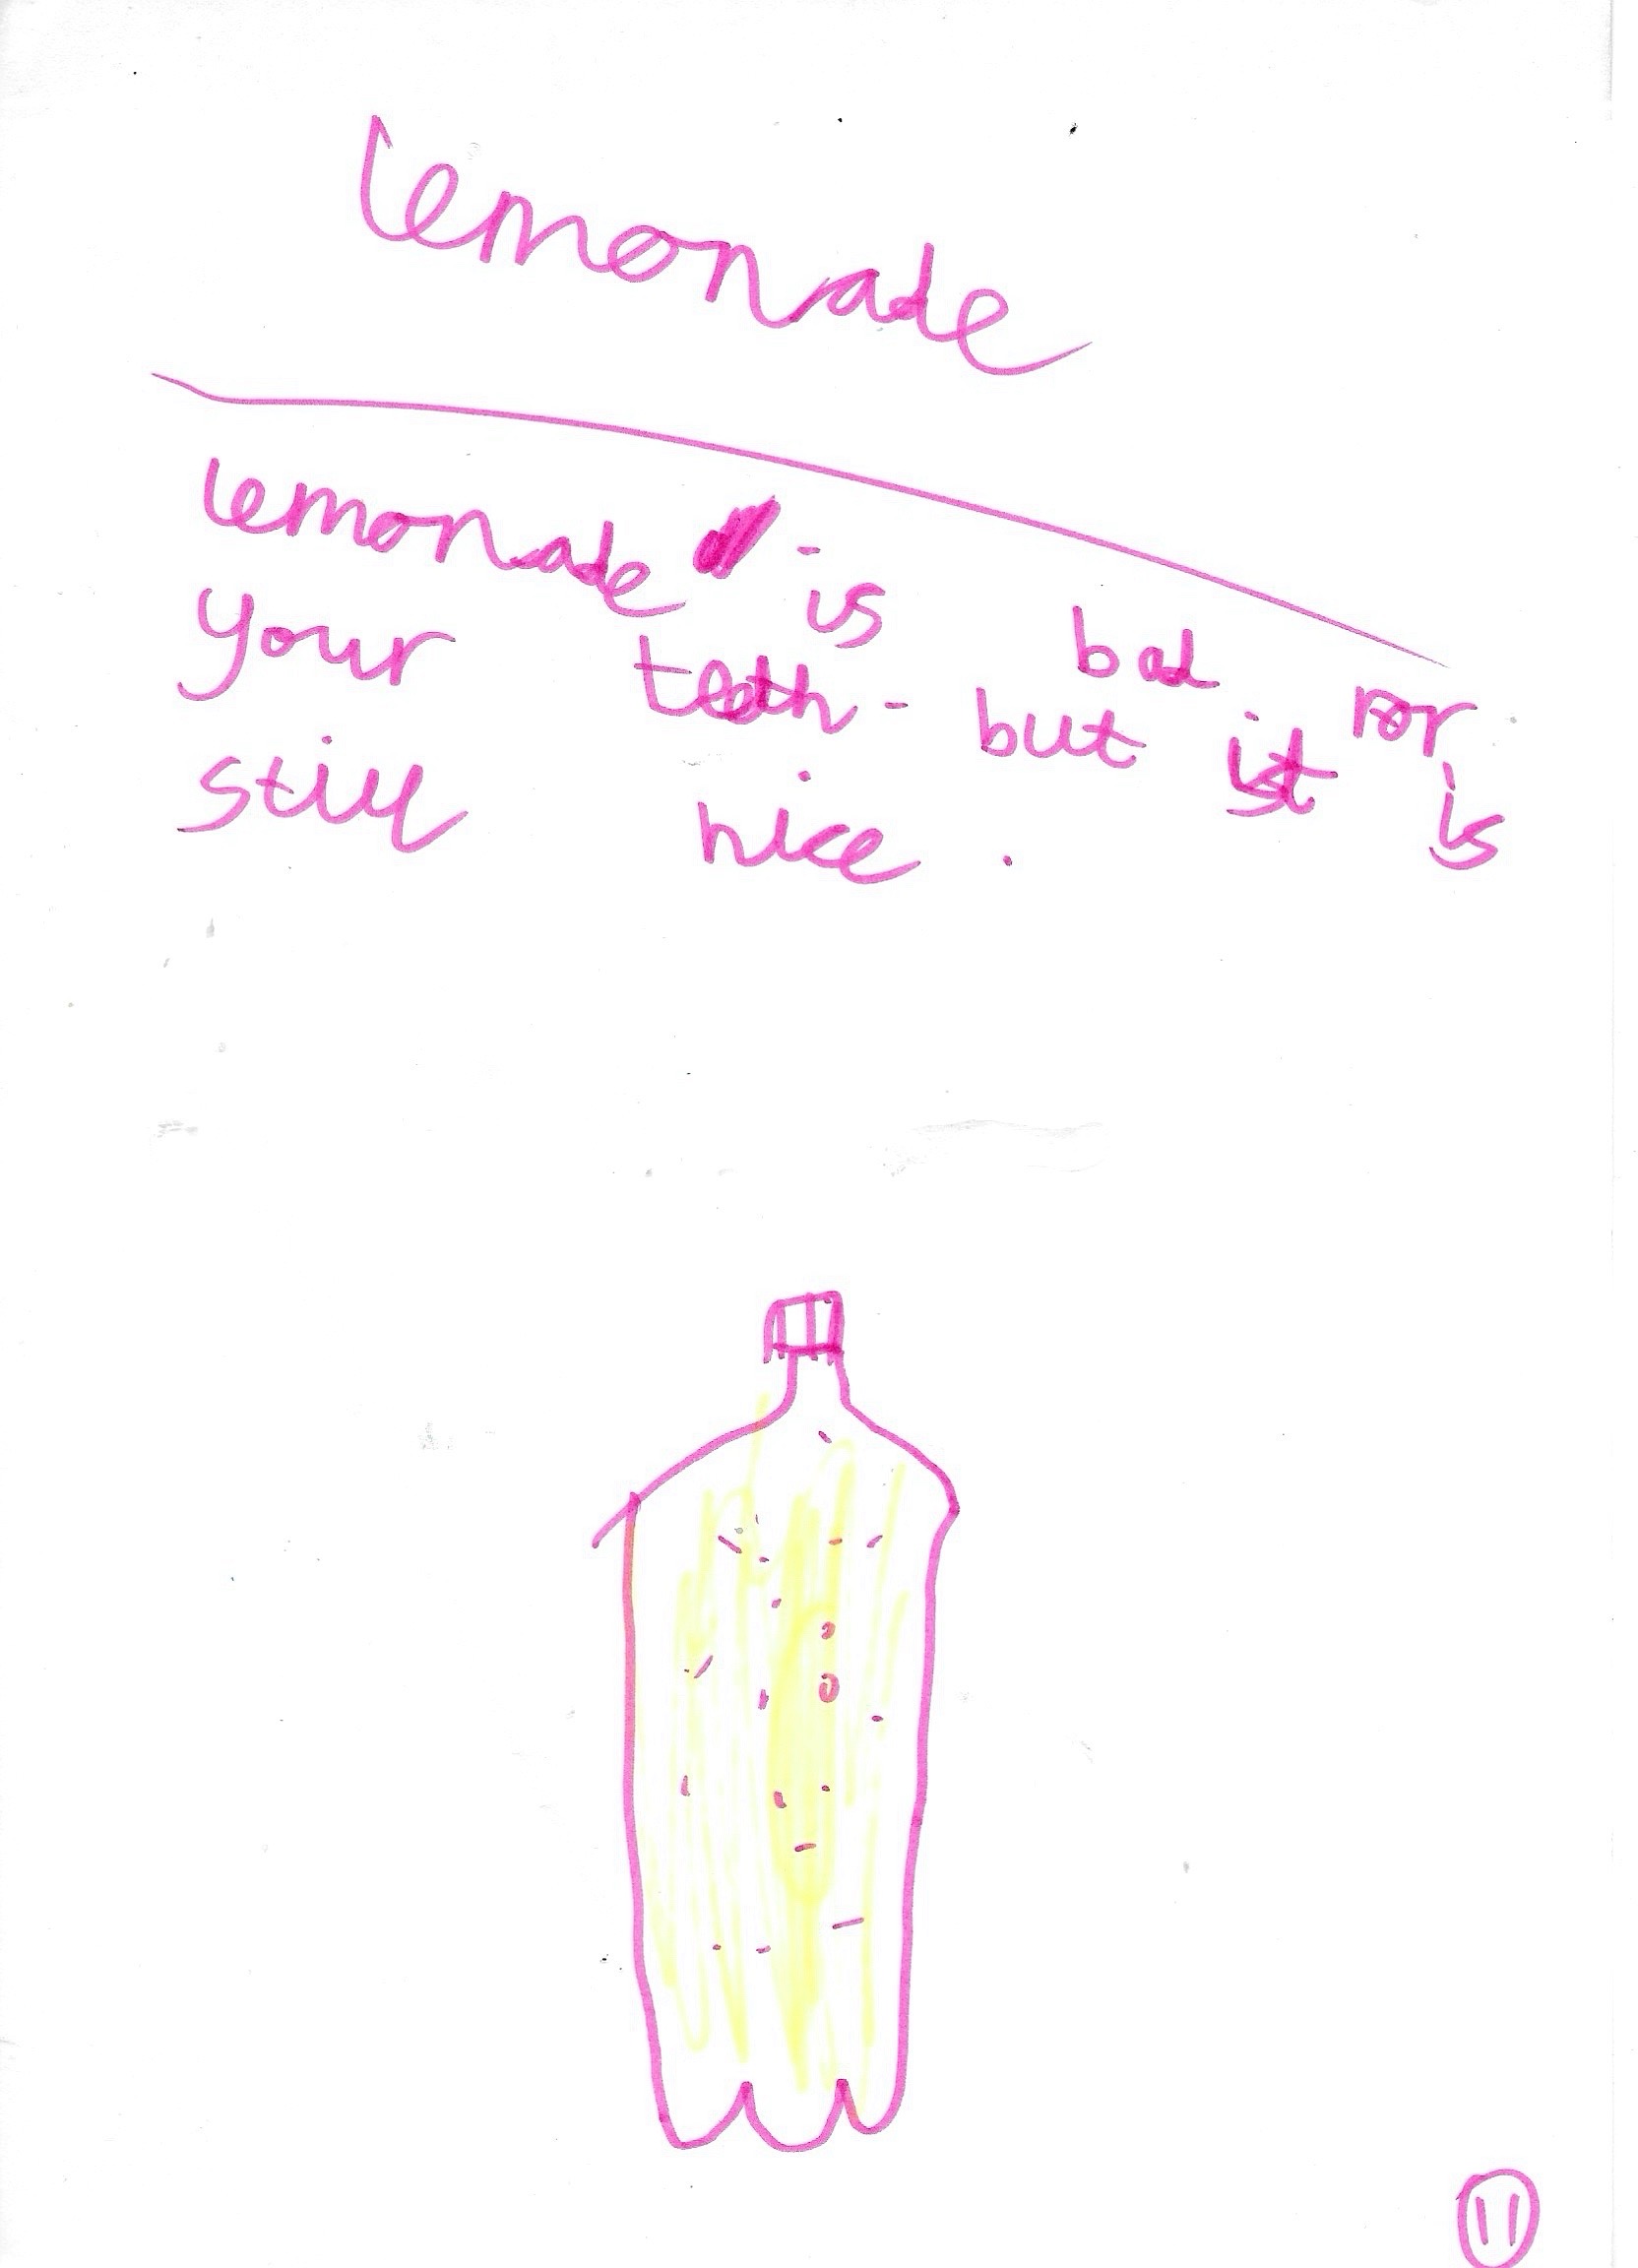 lemonade
lemonade is bad for
your teeth - but it is
still nice .
11